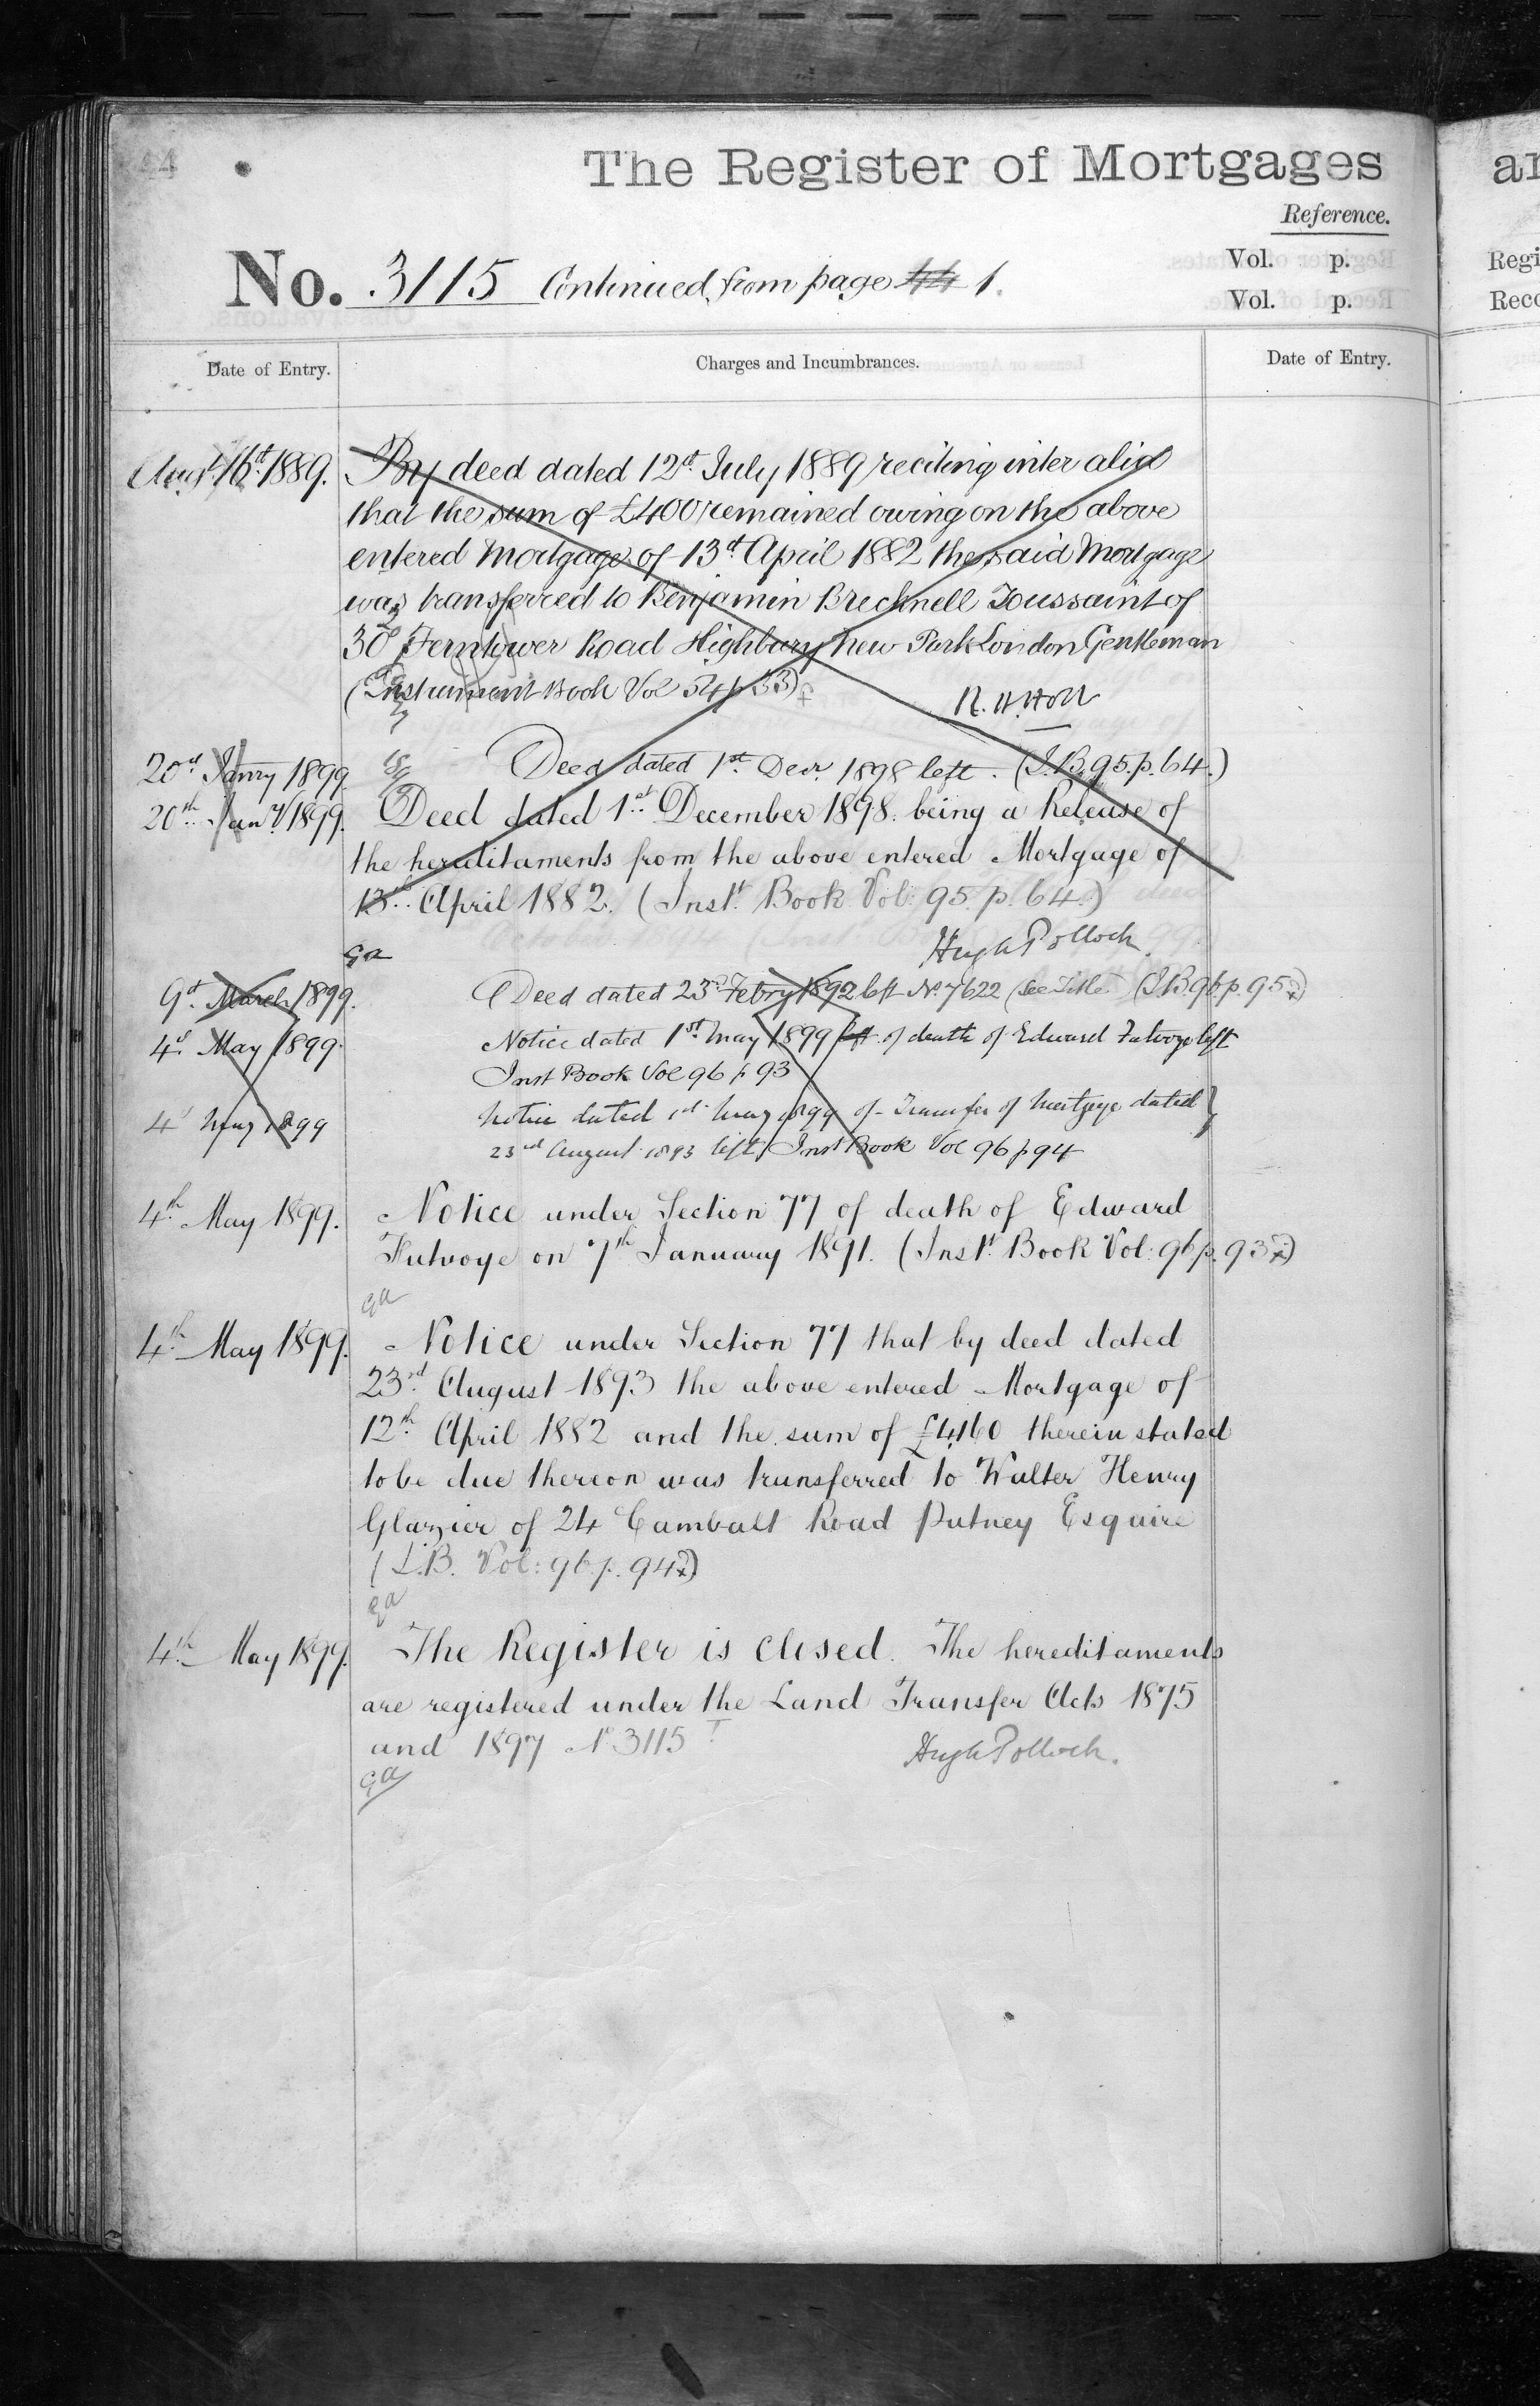 44
The Register of Mortgages
Reference.
No. 3115 Continued from page 44 1.
Vol. p.
Vol. p.
Date of Entry.
Charges and Incumbrances.
Date of Entry.
Augt. 16th. 1889. By deed dated 12th. July 1889 reciting inter alia
that the sum of £400 remained owing on the above
entered Mortgage of 13th April 1882 the said Mortgage
was transferred to Benjamin Brecknell Toussaint of
30 Ferntower Road Highbury New Park London Gentleman
(Instrument Book Vol 54 p 33)
R. H. Holt
20th Janry 1899 Deed dated 1st. Decr. 1898 left. (I.B. 95. p. 64.)
20th Jany 1899. Deed dated 1st. December 1898. being a Release of
the hereditaments from the above entered Mortgage of
13th. April 1882. (Inst. Book Vol: 95. p. 64.)
ga
Hugh Pollock
9th. March 1899. Deed dated 23rd Febry 1892 left No. 7622 (See Title (I.B. 96. p. 95)
4th. May 1899. Notice dated 1st. May 1899 left of death of Edward Futvoye left
Inst Book Vol 96 p 93
4th May 1899 Notice dated 1st. May 1899 of Transfer of Mortgage dated
23rd August 1893 left Inst Book Vol 96 p 94
4th. May 1899. Notice under Section 77 of death of Edward
Futvoye on 7th January 1891. (Inst. Book Vol: 96 p. 93)
ga
4th. May 1899. Notice under Section 77 that by deed dated
23rd. August 1893 the above entered Mortgage of
12th. April 1882 and the sum of £4160 therein stated
to be due thereon was transferred to Walter Henry
Glazier of 24 Cambalt Road Putney Esquire
(I.B. Vol: 96 p. 94)
ga
4th. May 1899. The Register is closed. The hereditaments
are registered under the Land Transfer Acts 1875
and 1897 No 3115
Hugh Pollock.
ga
ar
Regi
Reco